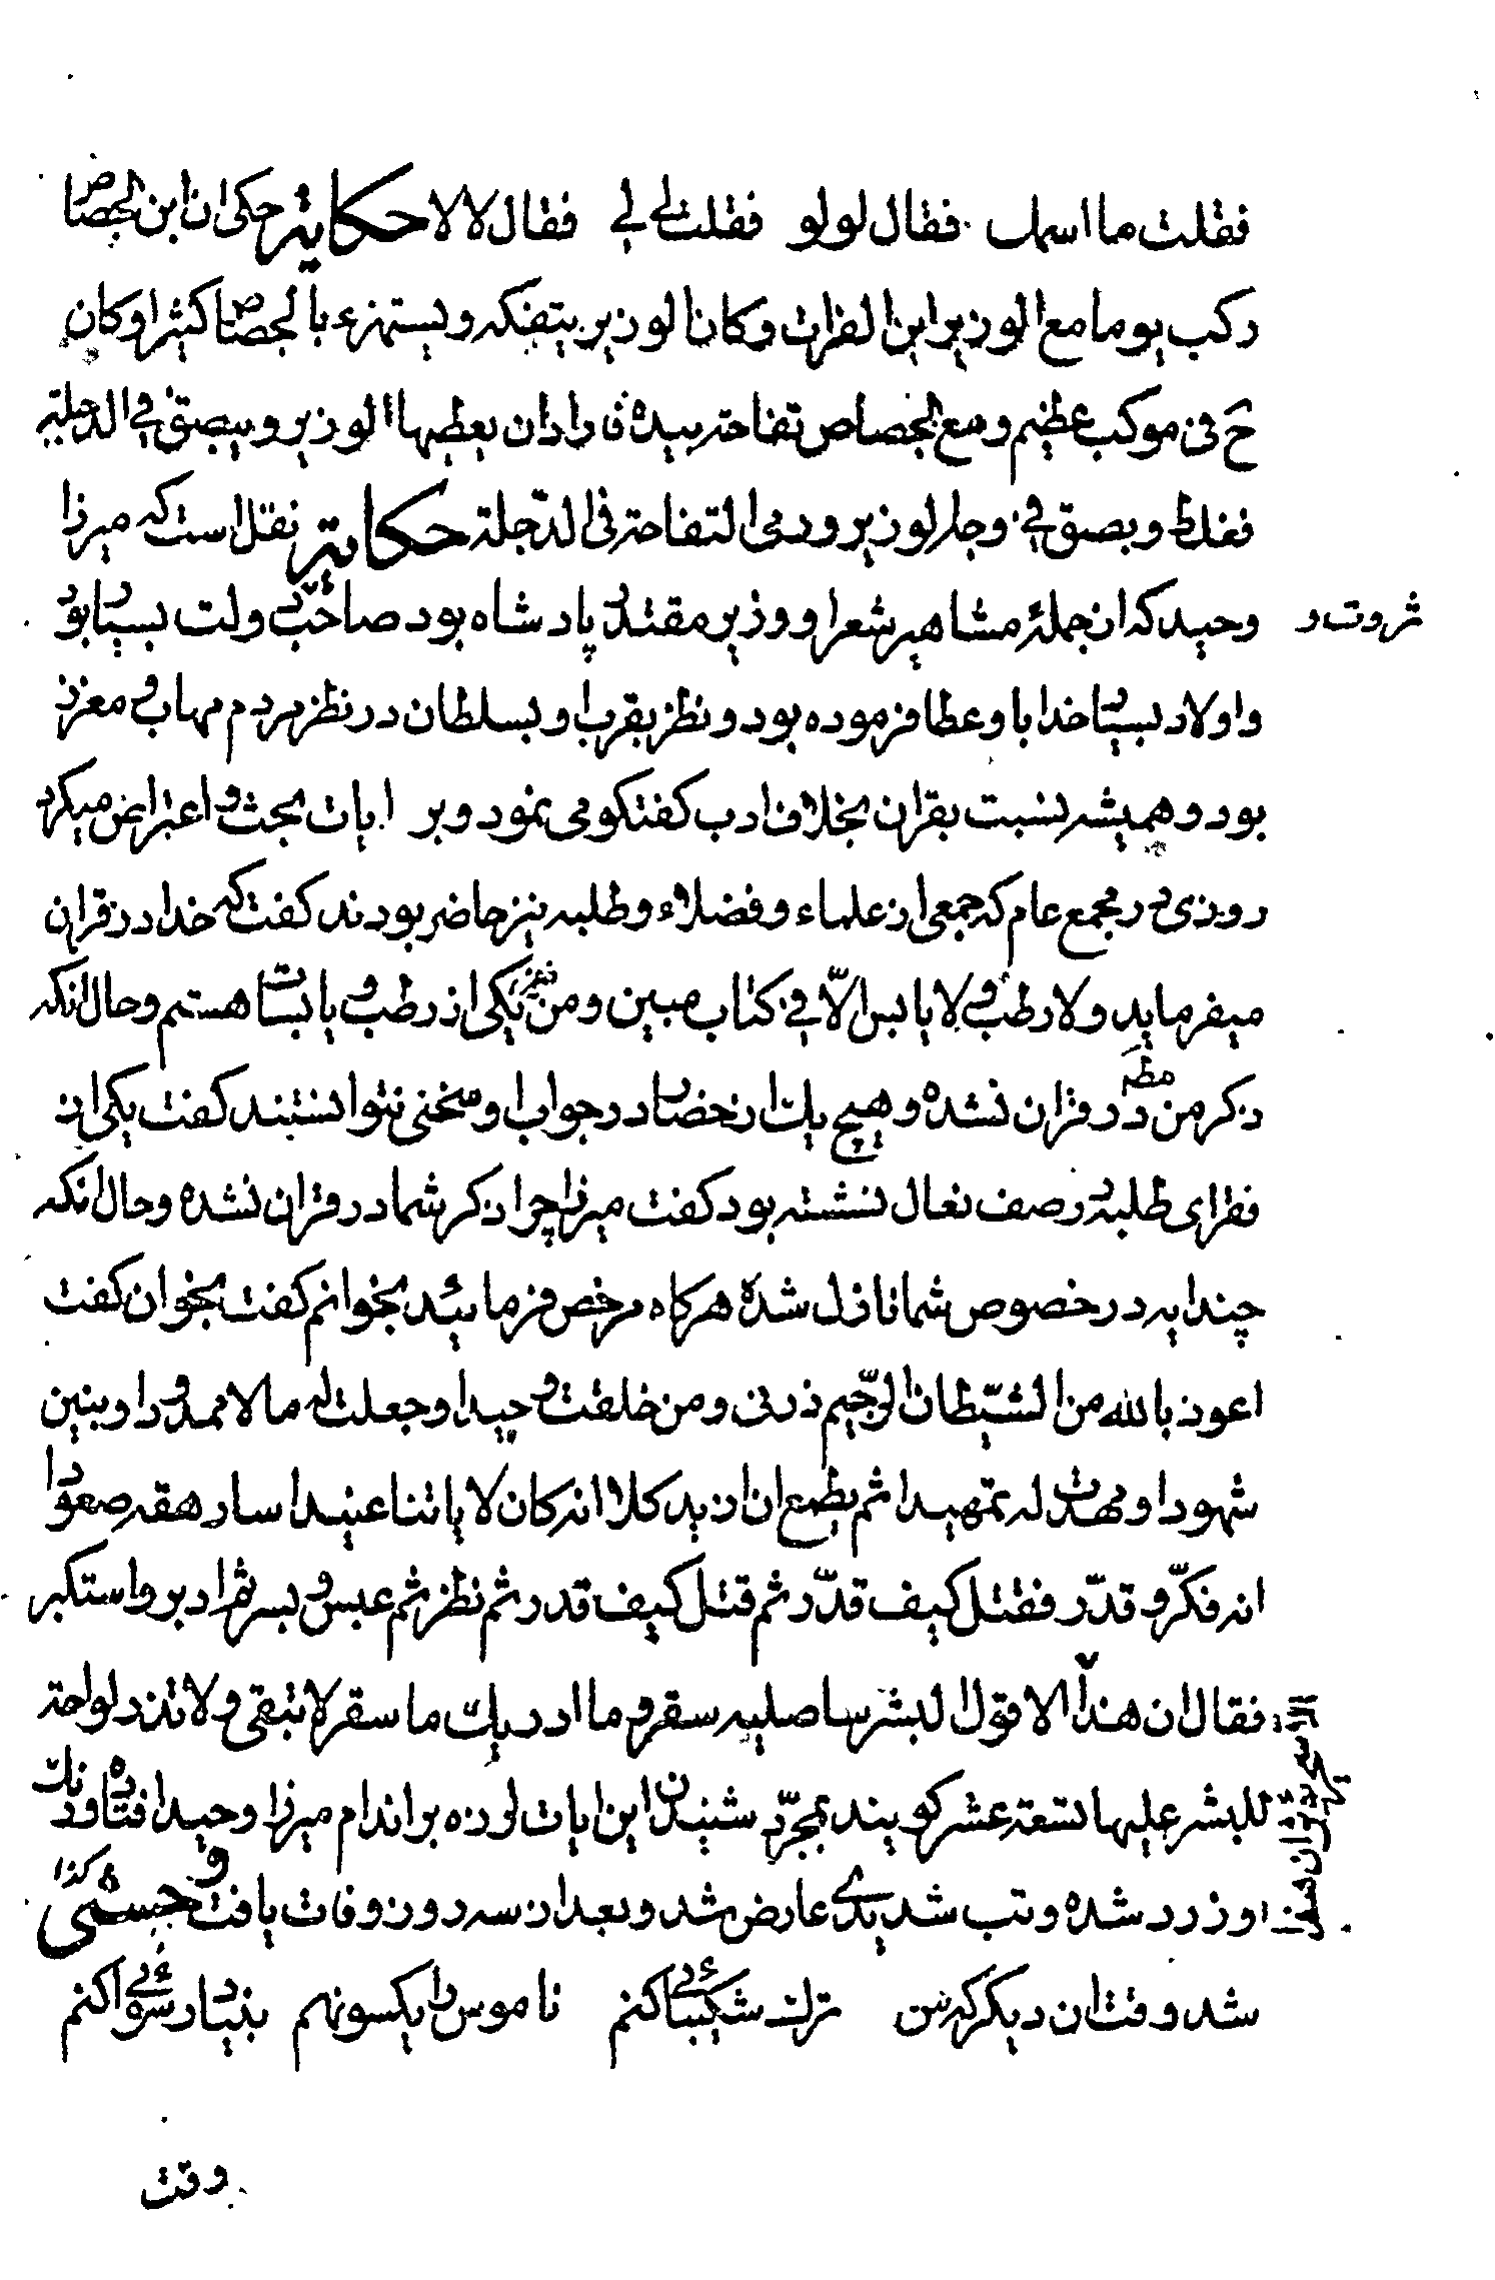 فقلت ما اسمك فقال لولو فقلت لي لي فقال لا لا حكاية حكى ان ابن الجصاص
ركب يوما مع الوزير ابن الفرات وكان الوزير يتفكه ويستهزء بالجصاص كثيرا وكان
ح في موكب عظيم ومع الجصاص تفاحة بيده فاراد ان يعطيها الوزير ويبصق في الدجلة
فغلط وبصق في وجه الوزير ورمى التفاحة في الدّجلة حكاية نقل است كه ميرزا
وحيد كه از جملهٔ مشاهير شعرا ووزير مقتدر پادشاه بود صاحب دولت بسيار بود
ثروت و
واولاد بسيار خدا باو عطا فرموده بود ونظر بقرب او بسلطان در نظر مردم مهاب ومعزز
بود وهميشه نسبت بقران بخلاف ادب كفتكو مى نمود وبر ايات بحث واعتراض ميكرد
روزى در مجمع عام كه جمعى از علماء وفضلاء وطلبه نيز حاضر بودند كفت كه خدا در قران
ميفرمايد ولا رطب ولا يابس الّا في كتاب مبين ومن نيز يكى از رطب ويابسات هستم وحال انكه
ذكر من در قران نشده وهيچ يك از حضار در جواب او سخنى نتوانستند كفت يكى از
مطلقا
فقراى طلبه در صف نعال نشسته بود كفت ميرزا چرا ذكر شما در قران نشده وحال انكه
چند ايه در خصوص شما نازل شده هركاه مرخص فرمائيد بخوانم كفت بخوان كفت
اعوذ بالله من الشّيطان الرّجيم ذرنى ومن خلقت وحيدا وجعلت له مالا ممدودا وبنين
شهودا ومهدت له تمهيدا ثم يطمع ان ازيد كلا انه كان لاياتنا عنيدا سارهقه صعودا
انه فكّر وقدّر فقتل كيف قدّر ثم قتل كيف قدر ثم نظر ثم عبس وبسر ثم ادبر واستكبر
فقال ان هذا الا قول البشر ساصليه سقر وما ادريك ما سقر لا تبقى ولا تذر لواحة
الا سحر يؤثر ان هذا
للبشر عليها تسعة عشر كويند بمجرّد شنيدن اين ايات لرزه بر اندام ميرزا وحيد افتاده ورنك
او زرد شده وتب شديدى عارض شد وبعد از سه روز وفات يافت وحشى كذا
شد وقت ان ديكر كه من ترك شكيبائى كنم ناموس را يكسو نهم بنياد رسوائى كنم
وقت